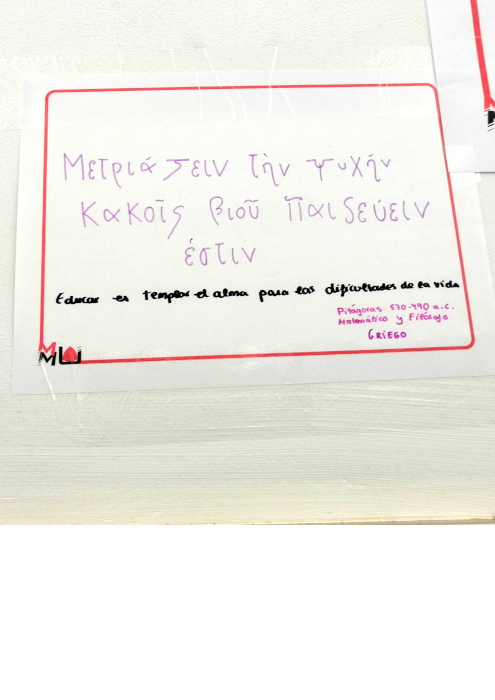 Μετριάζειν τὴν ψυχήν
κακοῖς βιοῦ παιδεύειν
ἐστιν
Educar es templar el alma para las dificultades de la vida
Pitágoras 570-490 a.c.
Matemático y Filósofo
GRIEGO